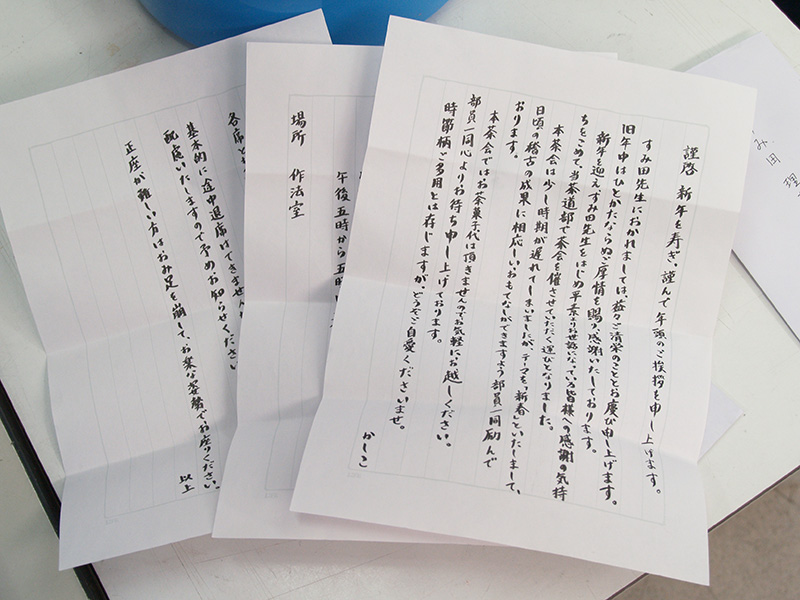 謹啓 新年を寿ぎ、謹んで年頭のご挨拶を申し上げます。
すみ田先生におかれましては、益々ご清栄のこととお慶び申し上げます。
旧年中はひとかたならぬご厚情を賜り感謝いたしております。
新年を迎え、すみ田先生をはじめ平素よりお世話になっている皆様への感謝の気持
ちをこめて、当茶道部で茶会を催させていただく運びとなりました。
本茶会は少し時期が遅れてしまいましたが、テーマを「新春」といたしまして、
日頃の稽古の成果に相応しいおもてなしができますよう部員一同励んで
おります。
本茶会ではお茶菓子代は頂きませんのでお気軽にお越しください。
部員一同心よりお待ち申し上げております。
時節柄ご多用とは存じますが、どうぞご自愛くださいませ。
かしこ
午後五時から五時
場所 作法室
各席と
基本的に途中退席はできません
配慮いたしますので予めお知らせください
正座が難しい方はおみ足を崩して、お楽な姿勢でお座りください。
以上
み田 理